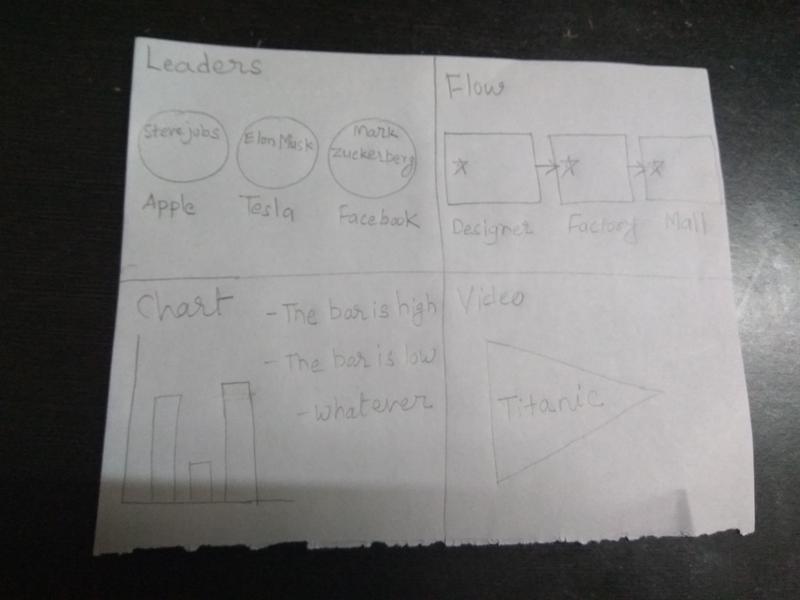 Leaders
Steve jobs
Elon Musk
Mark
zuckerberg
Apple
Tesla
Facebook
Flow
Designer
Factory
Mall
Chart
- The bar is high
- The bar is low
- whatever
Video
Titanic